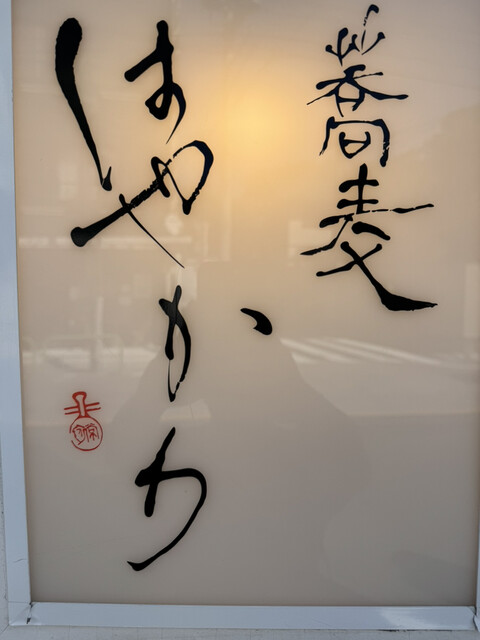 蕎麦
はやかわ